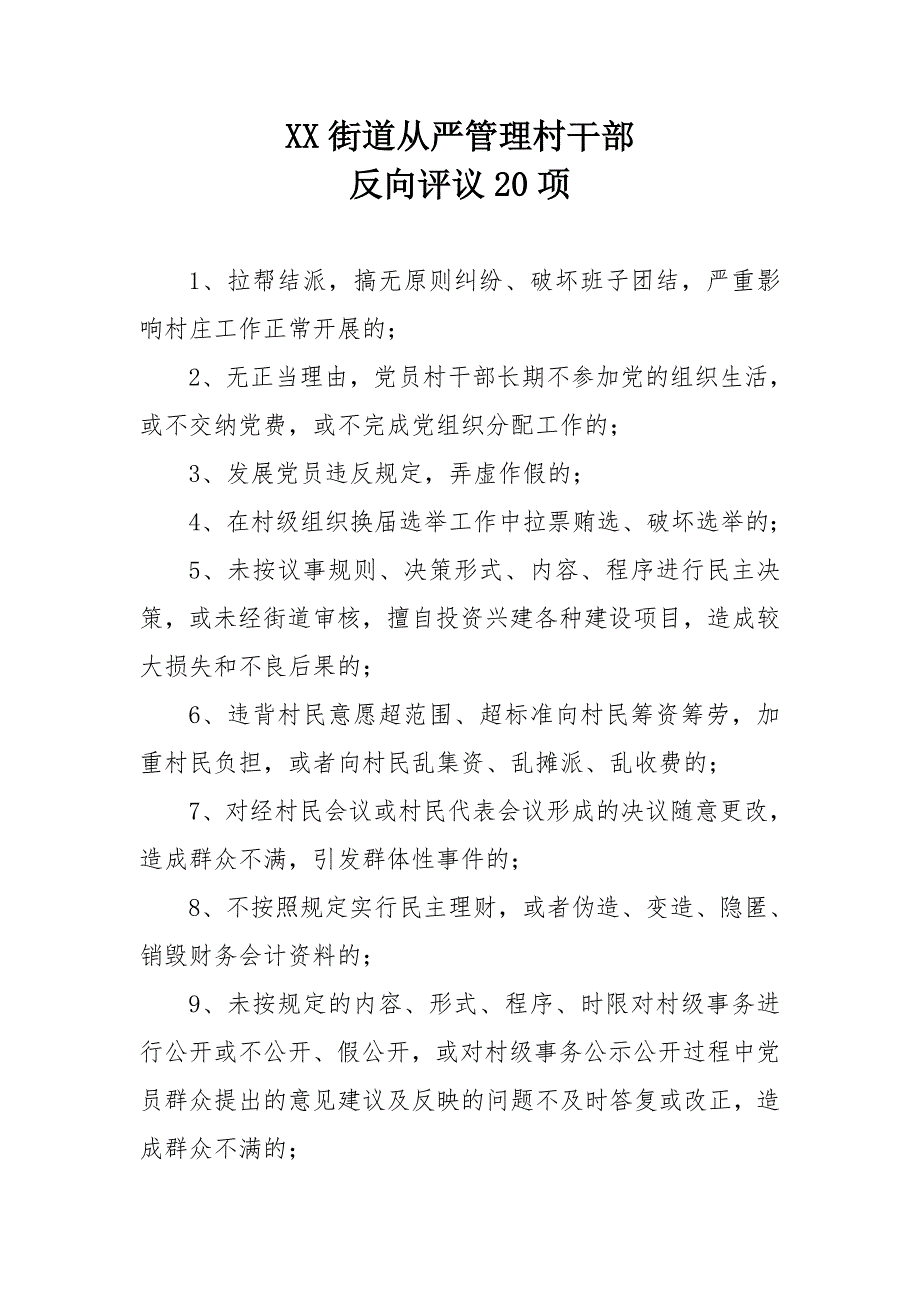 XX 街道从严管理村干部
反向评议 20 项
1、拉帮结派，搞无原则纠纷、破坏班子团结，严重影
响村庄工作正常开展的；
2、无正当理由，党员村干部长期不参加党的组织生活，
或不交纳党费，或不完成党组织分配工作的；
3、发展党员违反规定，弄虚作假的；
4、在村级组织换届选举工作中拉票贿选、破坏选举的；
5、未按议事规则、决策形式、内容、程序进行民主决
策，或未经街道审核，擅自投资兴建各种建设项目，造成较
大损失和不良后果的；
6、违背村民意愿超范围、超标准向村民筹资筹劳，加
重村民负担，或者向村民乱集资、乱摊派、乱收费的；
7、对经村民会议或村民代表会议形成的决议随意更改，
造成群众不满，引发群体性事件的；
8、不按照规定实行民主理财，或者伪造、变造、隐匿、
销毁财务会计资料的；
9、未按规定的内容、形式、程序、时限对村级事务进
行公开或不公开、假公开，或对村级事务公示公开过程中党
员群众提出的意见建议及反映的问题不及时答复或改正，造
成群众不满的；